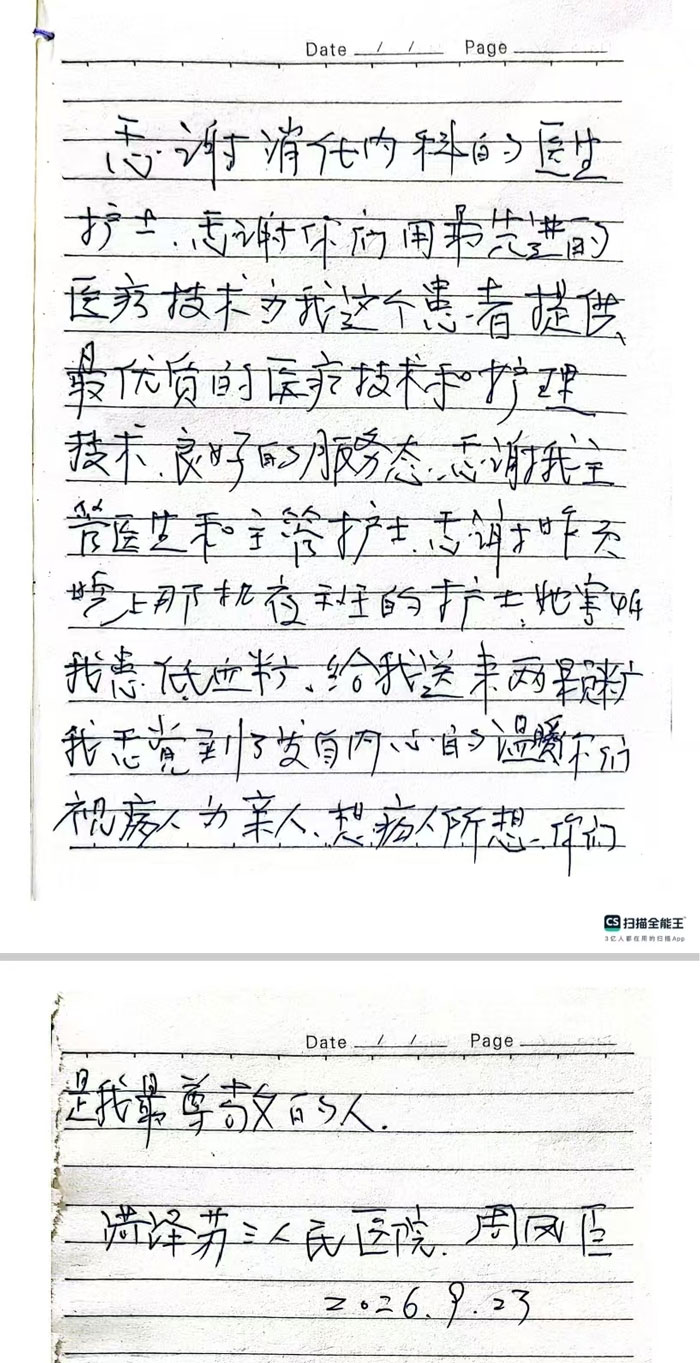 Date / / Page
感谢消化内科的医生
护士、感谢你们用最先进的
医疗技术为我这个患者提供
最优质的医疗技术和护理
技术、良好的服务态、感谢我主
管医生和主管护士、感谢昨天
晚上那机夜班的护士、她害怕
我患低血粘、给我送来两颗
我感觉到了发自内心的温暖你们
视病人为亲人、想病人所想、你们
CS 扫描全能王
3亿人都在用的扫描App
Date / / Page
是我最尊敬的人.
洪泽苏三人民医院. 周凤
2026.9.23